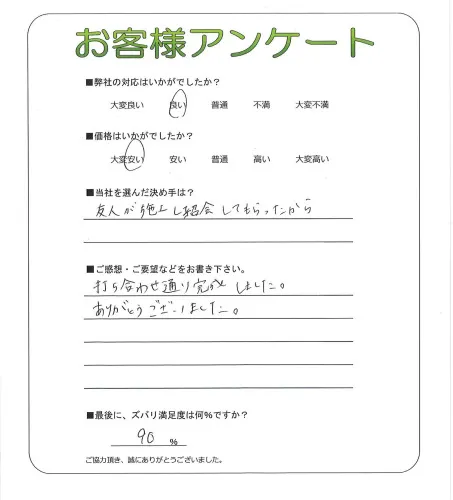 お客様アンケート
■弊社の対応はいかがでしたか?
大変良い 良い 普通 不満 大変不満
■価格はいかがでしたか?
大変安い 安い 普通 高い 大変高い
■当社を選んだ決め手は?
友人が施工し紹介してもらったから
■ご感想・ご要望などをお書き下さい。
打ち合わせ通り完成しました。
ありがとうございました。
■最後に、ズバリ満足度は何%ですか?
90 %
ご協力頂き、誠にありがとうございました。